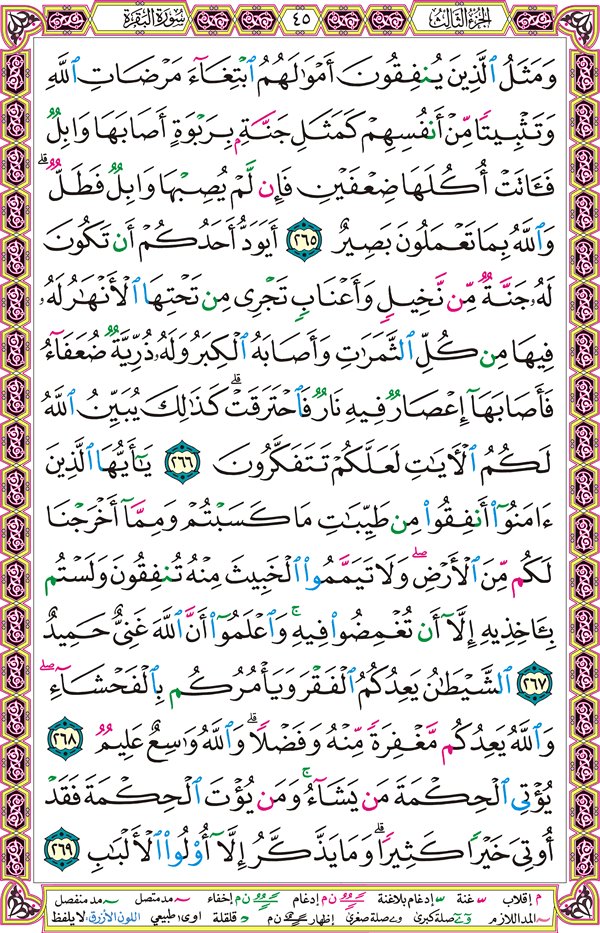 الجزء الثالث ٤٥ سورة البقرة
وَمَثَلُ ٱلَّذِينَ يُنفِقُونَ أَمْوَٰلَهُمُ ٱبْتِغَآءَ مَرْضَاتِ ٱللَّهِ
وَتَثْبِيتًا مِّنْ أَنفُسِهِمْ كَمَثَلِ جَنَّةٍۭ بِرَبْوَةٍ أَصَابَهَا وَابِلٌ
فَـَٔاتَتْ أُكُلَهَا ضِعْفَيْنِ فَإِن لَّمْ يُصِبْهَا وَابِلٌ فَطَلٌّ ۗ
وَٱللَّهُ بِمَا تَعْمَلُونَ بَصِيرٌ ٢٦٥ أَيَوَدُّ أَحَدُكُمْ أَن تَكُونَ
لَهُۥ جَنَّةٌ مِّن نَّخِيلٍ وَأَعْنَابٍ تَجْرِى مِن تَحْتِهَا ٱلْأَنْهَٰرُ لَهُۥ
فِيهَا مِن كُلِّ ٱلثَّمَرَٰتِ وَأَصَابَهُ ٱلْكِبَرُ وَلَهُۥ ذُرِّيَّةٌ ضُعَفَآءُ
فَأَصَابَهَآ إِعْصَارٌ فِيهِ نَارٌ فَٱحْتَرَقَتْ ۗ كَذَٰلِكَ يُبَيِّنُ ٱللَّهُ
لَكُمُ ٱلْـَٔايَٰتِ لَعَلَّكُمْ تَتَفَكَّرُونَ ٢٦٦ يَٰٓأَيُّهَا ٱلَّذِينَ
ءَامَنُوٓا۟ أَنفِقُوا۟ مِن طَيِّبَٰتِ مَا كَسَبْتُمْ وَمِمَّآ أَخْرَجْنَا
لَكُم مِّنَ ٱلْأَرْضِ ۖ وَلَا تَيَمَّمُوا۟ ٱلْخَبِيثَ مِنْهُ تُنفِقُونَ وَلَسْتُم
بِـَٔاخِذِيهِ إِلَّآ أَن تُغْمِضُوا۟ فِيهِ ۚ وَٱعْلَمُوٓا۟ أَنَّ ٱللَّهَ غَنِىٌّ حَمِيدٌ
٢٦٧ ٱلشَّيْطَٰنُ يَعِدُكُمُ ٱلْفَقْرَ وَيَأْمُرُكُم بِٱلْفَحْشَآءِ ۖ
وَٱللَّهُ يَعِدُكُم مَّغْفِرَةً مِّنْهُ وَفَضْلًا ۗ وَٱللَّهُ وَٰسِعٌ عَلِيمٌ ٢٦٨
يُؤْتِى ٱلْحِكْمَةَ مَن يَشَآءُ ۚ وَمَن يُؤْتَ ٱلْحِكْمَةَ فَقَدْ
أُوتِىَ خَيْرًا كَثِيرًا ۗ وَمَا يَذَّكَّرُ إِلَّآ أُو۟لُوا۟ ٱلْأَلْبَٰبِ ٢٦٩
م إقلاب غنة إدغام بلاغنة ن م إدغام ن م إخفاء مد متصل مد منفصل
المد اللازم صلة كبرى صلة صغرى إظهار ن م قلقلة اوى: طبيعي اللون الأزرق: لا يلفظ